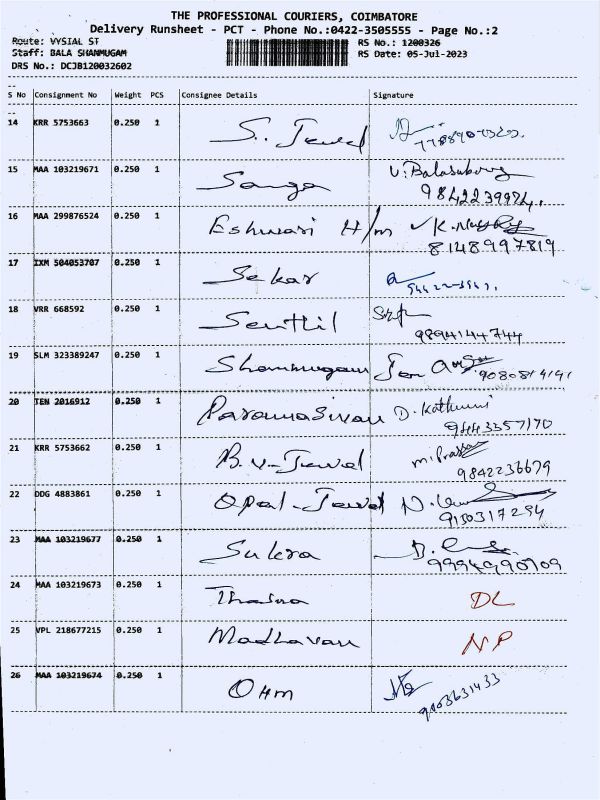 THE PROFESSIONAL COURIERS, COIMBATORE
Delivery Runsheet - PCT - Phone No.:0422-3505555 - Page No.:2
Route: VYSIAL ST RS No.: 1200326
Staff: BALA SHANMUGAM RS Date: 05-Jul-2023
DRS No.: DCJB120032602
S No Consignment No Weight PCS Consignee Details Signature
14 KRR 5753663 0.250 1 S. Jewel
15 MAA 103219671 0.250 1 Sanga V. Balasubra
9842239974.
16 MAA 299876524 0.250 1 Eshwari H/m
8148997819
17 IXM 504053707 0.250 1 Sekar
18 VRR 668592 0.250 1 Senthil
9894144744
19 SLM 323389247 0.250 1 Shanmugam
20 TEN 2016912 0.250 1 Paramasivan D. Kathumi
9443357170
21 KRR 5753662 0.250 1 B.V-Jewel
9842236679
22 DDG 4883861 0.250 1 Opal-Jewel
9150317294
23 MAA 103219677 0.250 1 Sukra
9994990709
24 MAA 103219673 0.250 1 DL
25 VPL 218677215 0.250 1 Madhavan NP
26 MAA 103219674 0.250 1 Ohm
9003631433